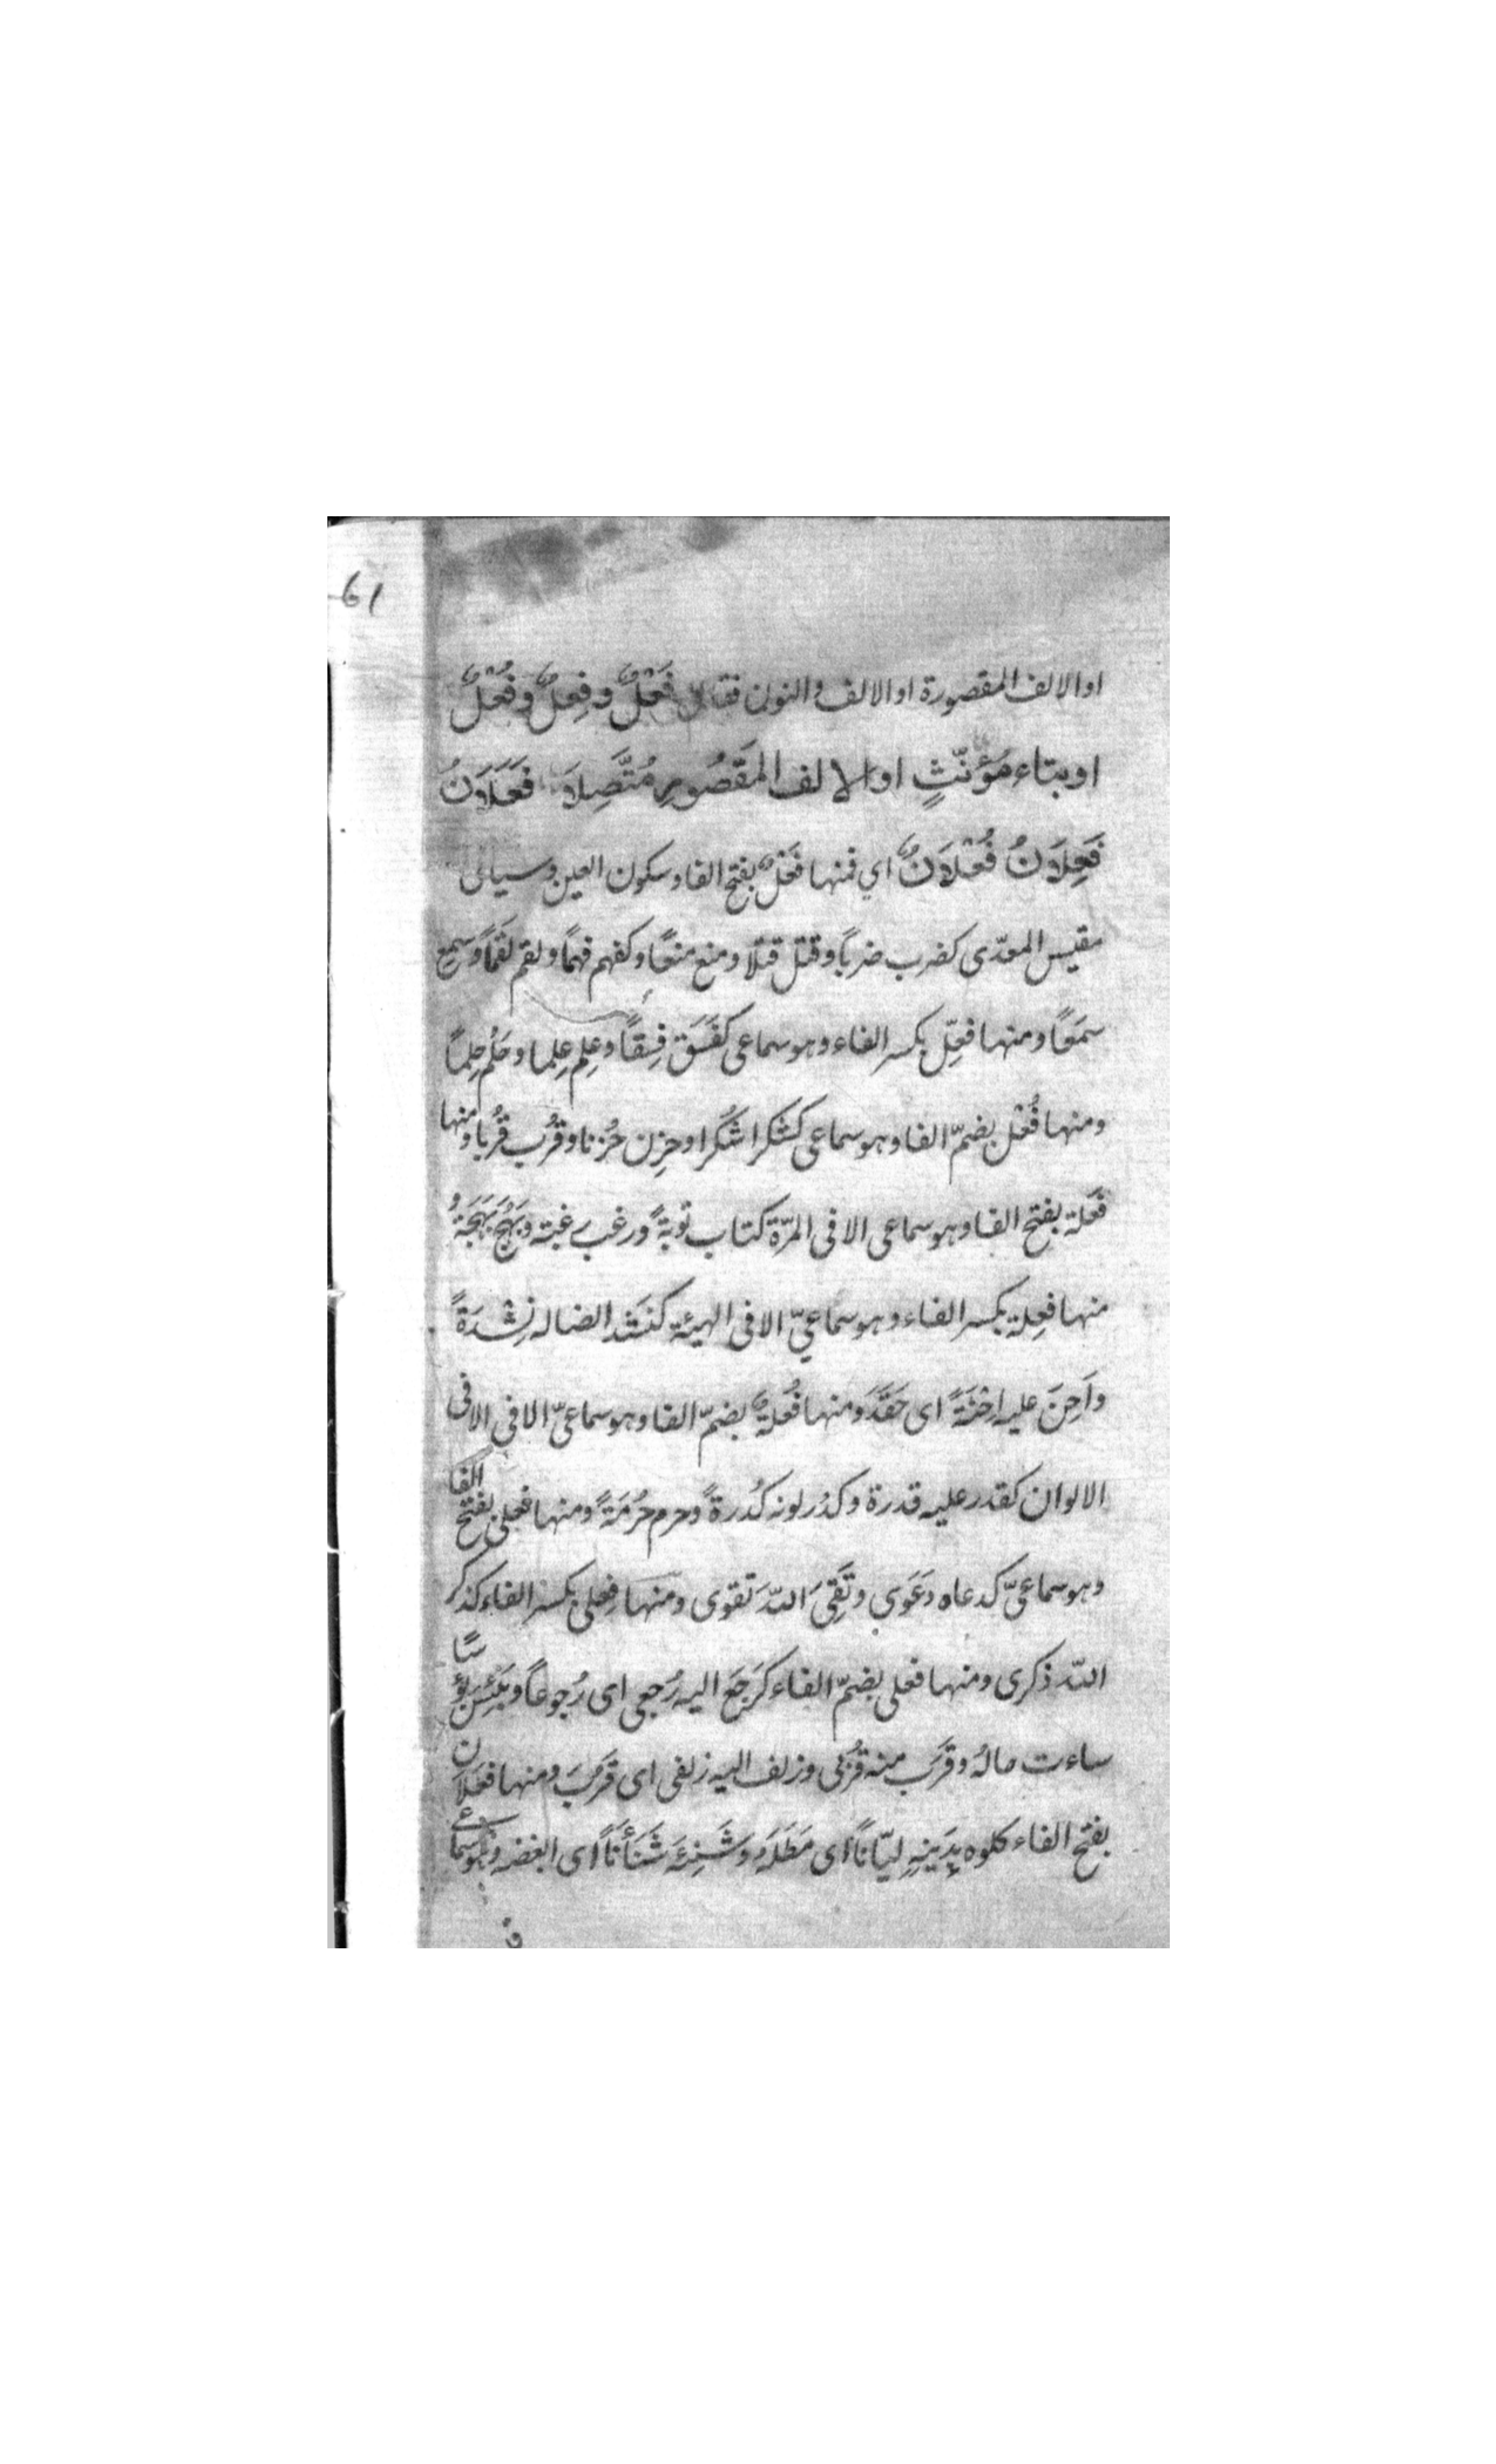 61
او الالف المقصورة او الالف والنون فقال فَعْلٌ وفِعْلٌ وفُعْلٌ
او بتاء مُؤَنّثٍ او الالف المَقصُورِ مُتَّصِلاَ فَعَلَانُ
فَعِلَانُ فُعْلَانٌ اي فمنها فَعْلٌ بفتح الفا وسكون العين وسياتى
مقيس المعدّى كضرب ضرباً وقتل قتلا ومنع منعًا وكفهم فهمًا ولقم لَقمًا وسَمِعَ
سمَعًا ومنها فعِل بكسر الفاء وهو سماعى كفَسَق فِسقًا وعِلم عِلما وحَلُم حِلمًا
ومنها فُعْل بضمّ الفا وهو سماعى كشكرا شُكرا وحزِن حُزنا وقرُب قُربا ومنها
فَعلة بفتح الفا وهو سماعى الا فى المرّة كتاب توبةً ورغب رغبته وبَهُجَ بَهَجَةُ
منها فعِلة بكسر الفاء وهو سماعيّ الا فى الهيئة كنَشَد الضاله نِشدَةً
واَحِنَ عليه اِحْنَةً اى حَقَدَ ومنها فُعلةٌ بضمّ الفا وهو سماعىّ الا فى الا فى
الالوان كقدر عليه قدرة وكدُر لونه كُدرةً وحرم حُرمَةً ومنها فعلى بفتح الفا
وهو سماعىّ كدعاه دَعَوى وتَقِىَ اللّهَ تقوى ومنها فِعلى بكسر الفاء كذكر
اللّه ذكرى ومنها فعلى بضمّ الفاء كرَجَعَ اليه رُجعى اى رُجوعاً وبَئِسَ بؤسًا
ساءت حالهُ وقَرَب منه قُربى وزلف اليه زلفى اى قَرَبَ ومنها فَعَلَان
بفتح الفاء كلوه بِدَينِهِ ليّانًا اى مَطَلَه وشَنِئَه شَنَأنًا اى ابغضه وهو سماعى